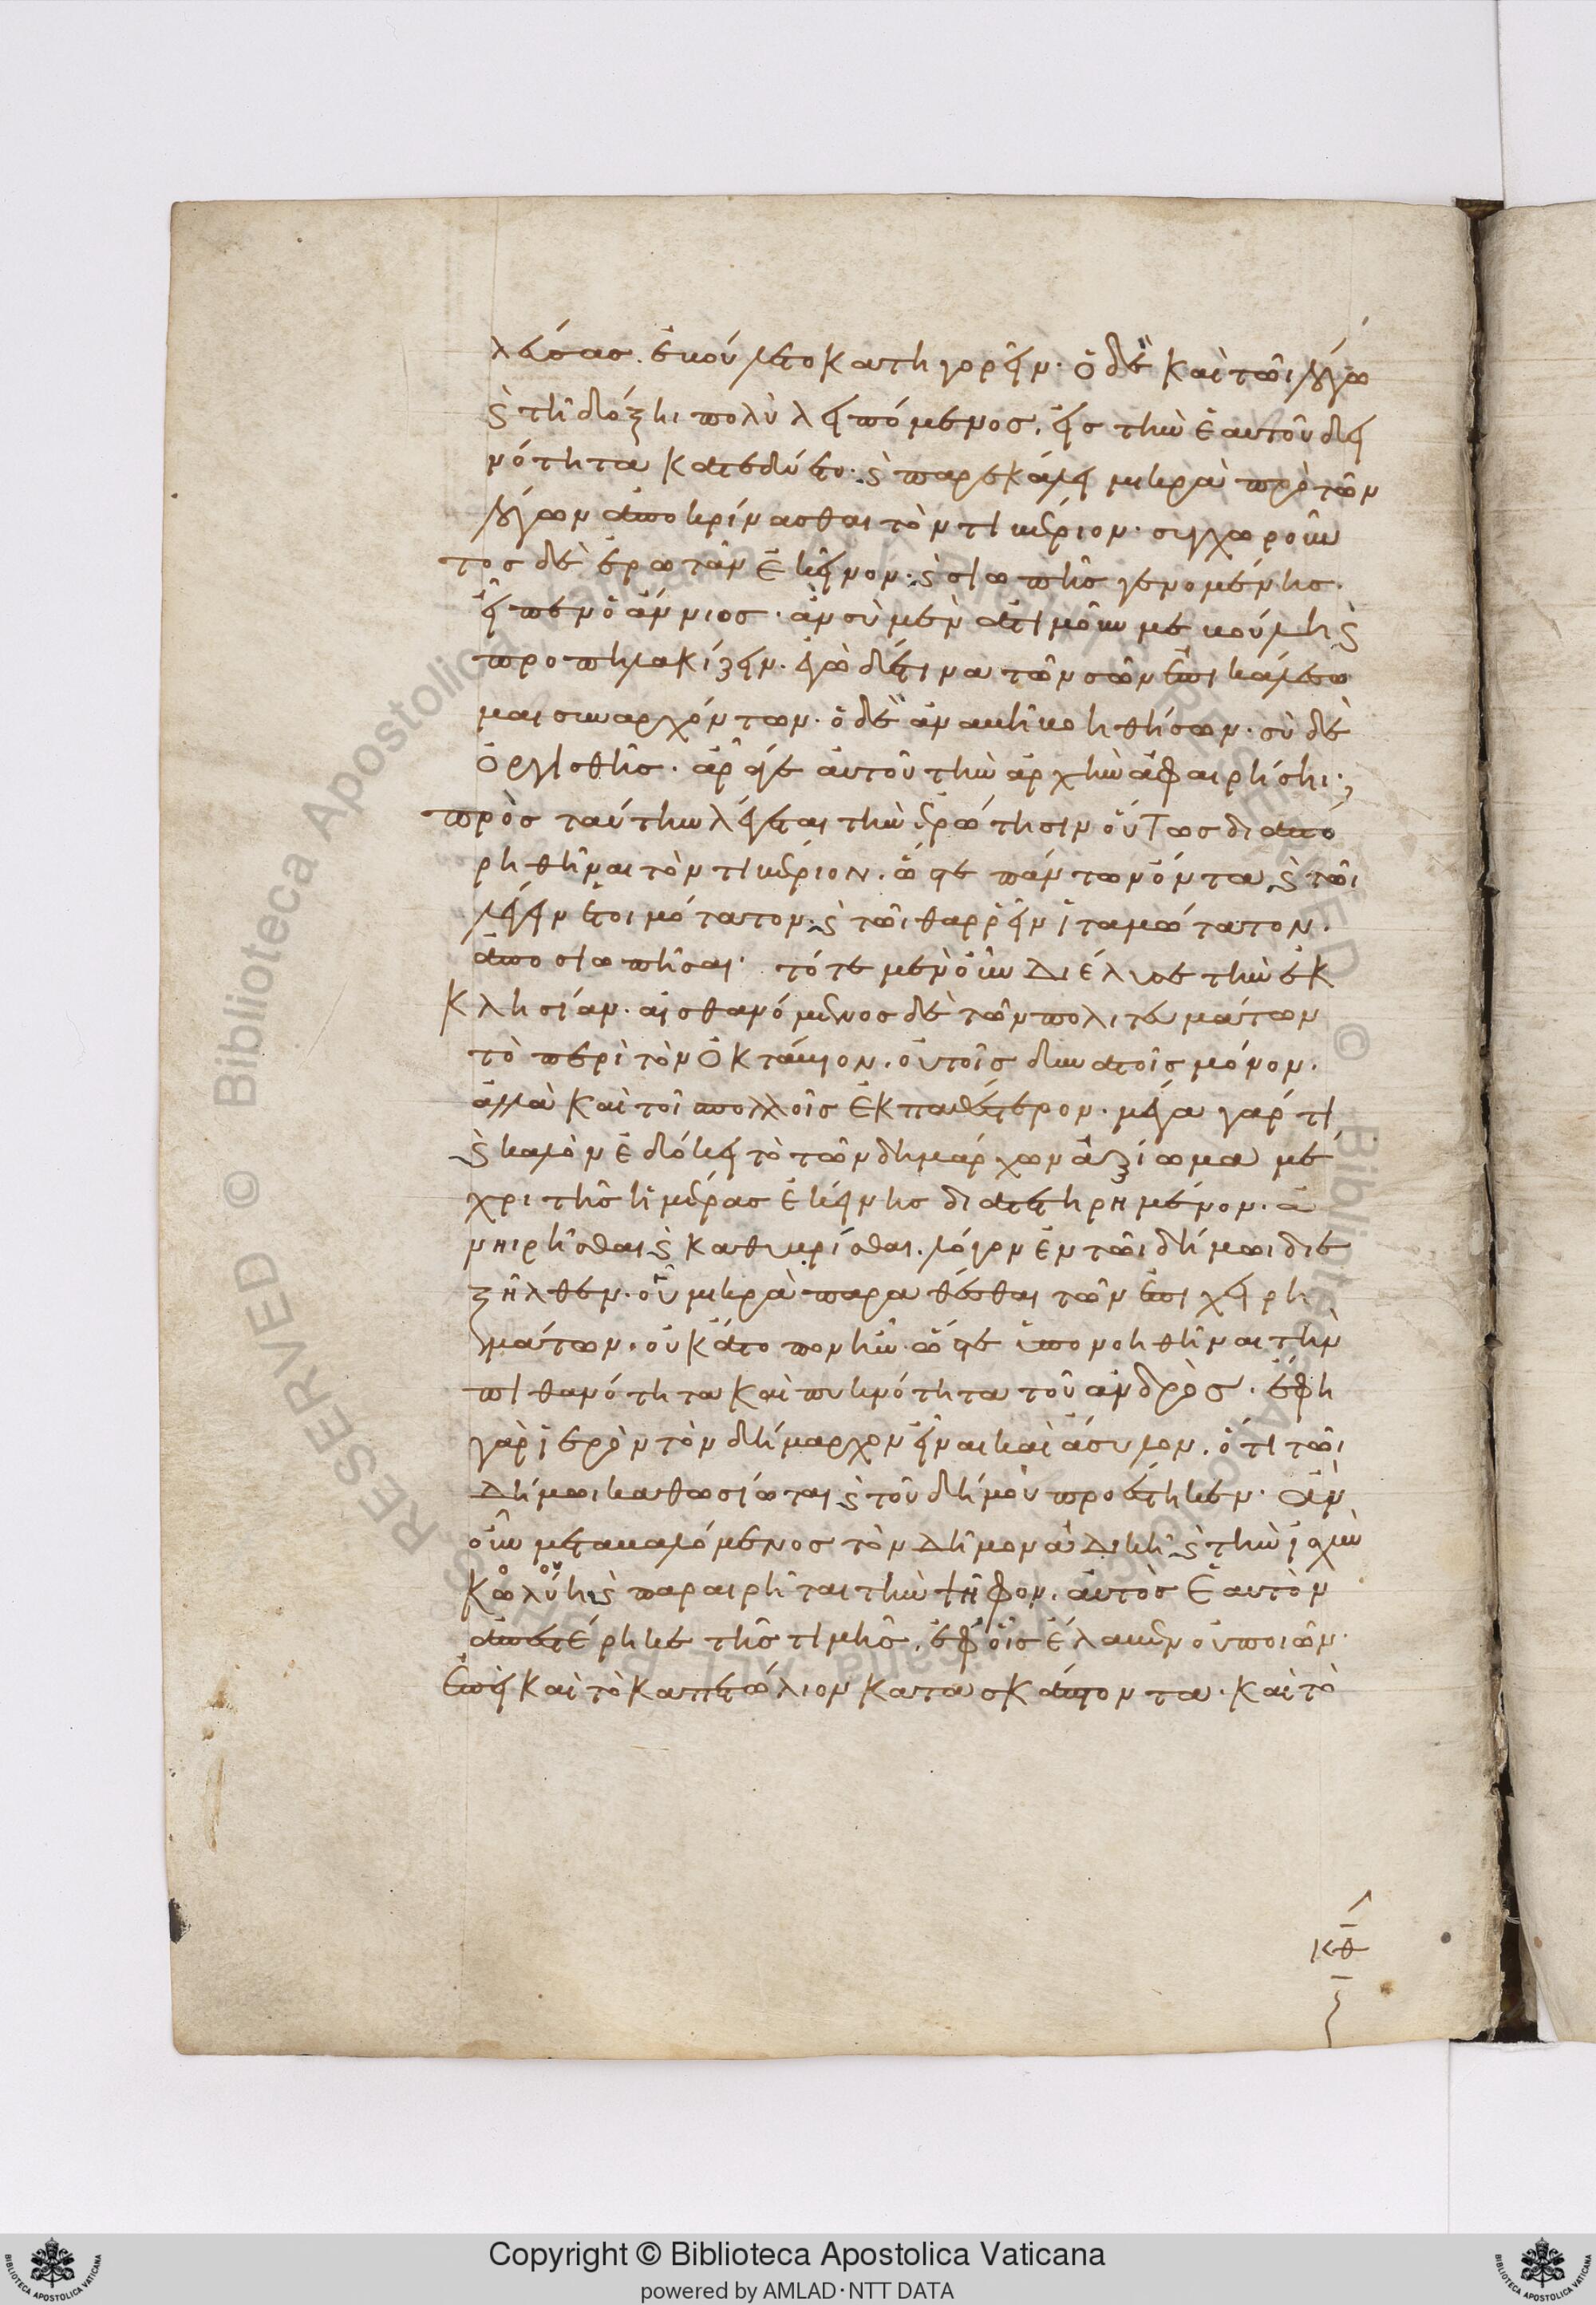 λεύσας. ἐκούλετο κατηγορεῖν· ὁ δὲ καὶ τῶι λόγω
καὶ τῆ δόξηι πολὺ λειπόμενος, εἰς τὴν ἑαυτοῦ δει
νότητα κατεδύετο· καὶ παρεκάλει μικρὰ πρὸ τῶν
λόγων ἀποκρίνασθαι τὸν τικέριον· συγχωροῦν
τος δὲ ἐρωτᾶν ἐκείνου· καὶ σιωπῆς γενομένης.
εἶπεν ὁ ἄννιος· ἂν σὺ μὲν ἀτιμοῦν με κούληι καὶ
προπηλακίζειν· ἐγὼ δέ τινα τῶν σῶν ἐπικαλέσω
μαι συναρχόντων· ὁ δὲ ἀνακῆι κοηθήσων· σὺ δὲ
ὀργισθῆς· ἆρά γε αὐτοῦ τὴν ἀρχὴν ἀφαιρήσηι;
πρὸς ταύτην λέγεται τὴν ἐρώτησιν οὕτως διαπο
ρηθῆναι τὸν τικέριον. ὥστε πάντων ὄντα καὶ τῶι
λέγειν ἑτοιμότατον· καὶ τῶι θαρρεῖν ἰταμώτατον.
ἀποσιωπῆσαι· τότε μὲν οὖν διέλυσε τὴν ἐκ
κλησίαν· αἰσθανόμενος δὲ τῶν πολιτευμάτων
τὸ περὶ τὸν ὀκτάυιον. οὐ τοῖς δυνατοῖς μόνον.
ἀλλὰ καὶ τοῖ πολλοῖς ἐκπαθέτερον· μέγα γάρ τι
καὶ καλὸν ἐδόκει τὸ τῶν δημάρχων ἀξίωμα μέ
χρι τῆς ἡμέρας ἐκείνης διατετηρημένον. ἀ
νηιρῆσθαι καὶ καθυκρίσθαι. λόγον ἐν τῶι δήμωι διε
ξῆλθεν· οὗ μικρὰ παραθέσθαι τῶν ἐπιχειρη
μάτων. οὐκ ἄτοπον ἦν· ὥστε ὑπονοηθῆναι τὴν
πιθανότητα καὶ πυκνότητα τοῦ ἀνδρὸς. ἔφη
γὰρ ἱερὸν τὸν δήμαρχον εἶναι καὶ ἄσυλον. ὅτι τῶι
δήμωι καθωσίωται καὶ τοῦ δήμου προέστηκεν· ἂν
οὖν μετακαλόμενος τὸν δῆμον ἀδικῆ καὶ τὴν ἰσχὺν
κολούηι καὶ παραιρῆται τὴν ψῆφον. αὐτὸς ἑαυτὸν
ἀπεστέρηκε τῆς τιμῆς. ἐφ οἷς ἔλακεν οὐ ποιῶν.
ἐπεὶ καὶ τὸ καπετώλιον κατασκάπτοντα. καὶ τὸ
κθ